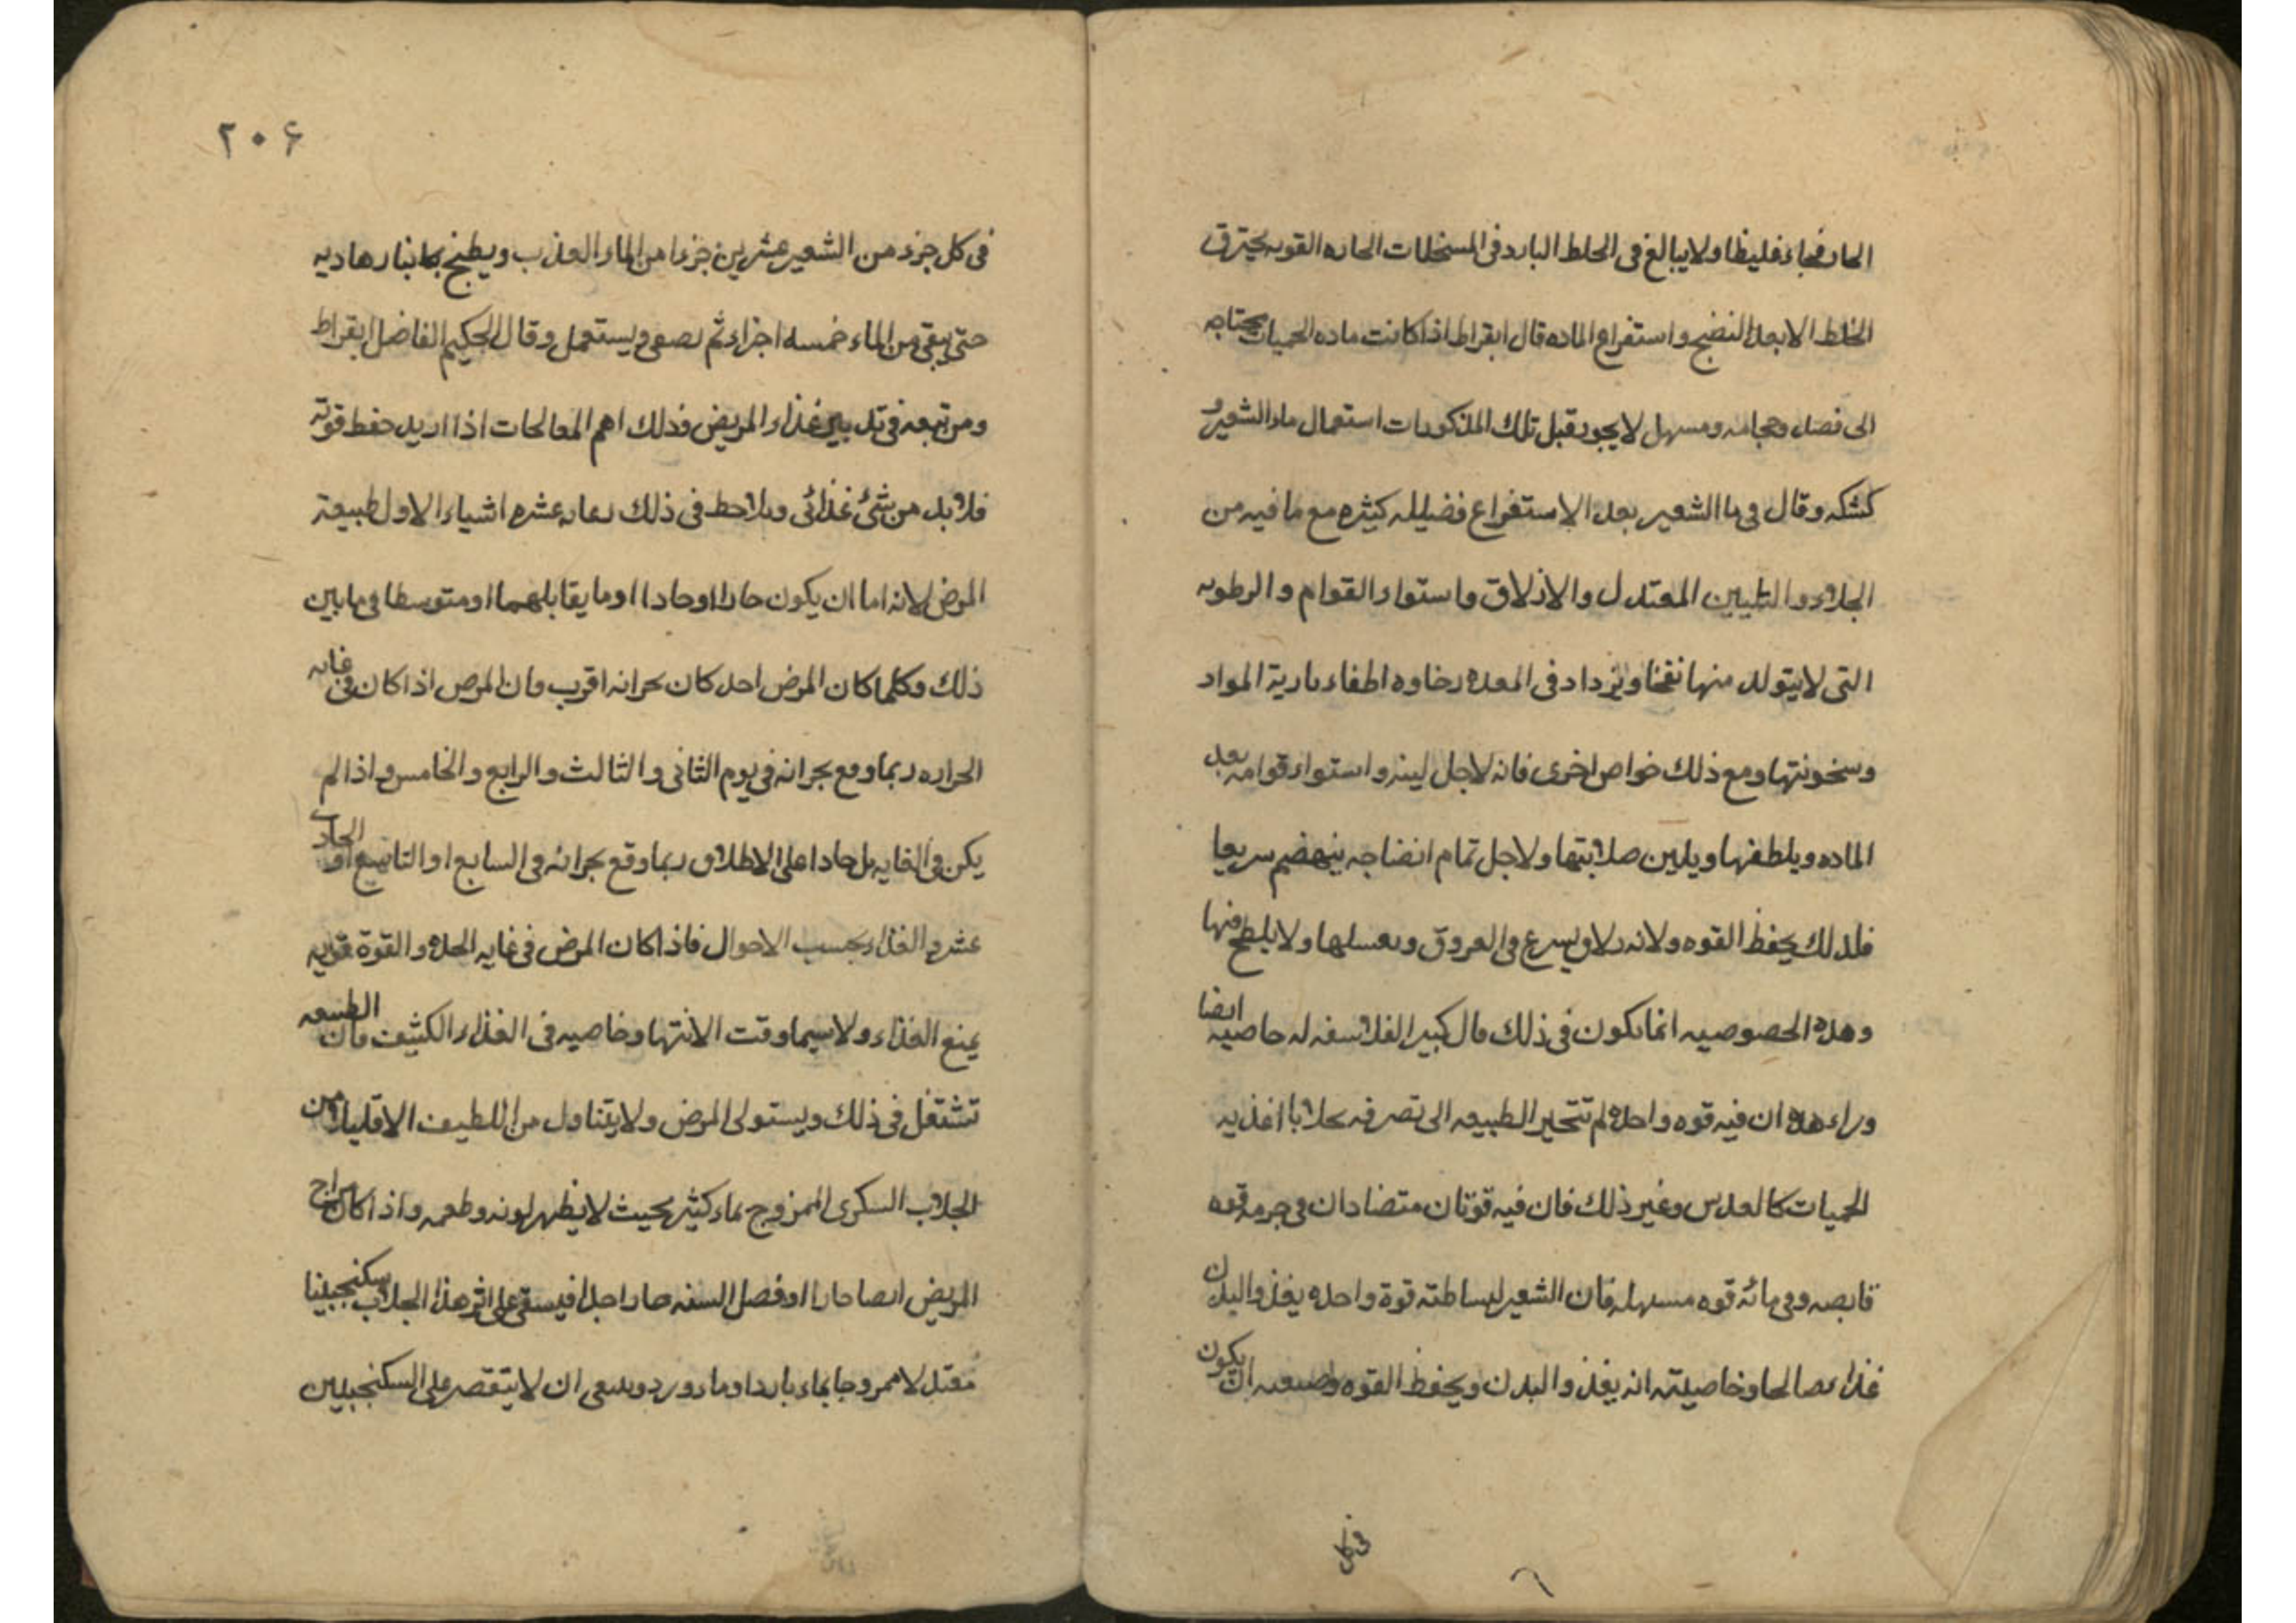 الحار فجاء غليظا ولا يبالغ فى الخلط البارد فى المسخنات الحاره القويه يحترق
الخلط الا بعد النضج واستفراع الماده قال ابقراط اذا كانت ماده الحميات يحتاج
الى فصد وحجامه ومسهل لا يجوز قبل تلك المذكورات استعمال ماء الشعير و
كشكه وقال فى ما الشعير بعد الاستفراع فضيله كثيره مع ما فيه من
الجلاء والتليين المعتدل والازلاق واستواء القوام والرطوبه
التى لا يتولد منها نفخا ويزداد فى المعده رخاوه اطفاء نارية المواد
وسخونتها ومع ذلك خواص اخرى فانه لاجل لينه واستواء قوامه يعدل
الماده ويلطفها ويلين صلابتها ولاجل تمام انضاجه ينهضم سريعا
فلذلك يحفظ القوه ولانه زلاق يسرع فى العروق ويغسلها ولا يلطخ منها
وهذه الخصوصيه انما يكون فى ذلك قال كبير الفلاسفه له خاصيه ايضا
وراء هذه ان فيه قوه واحده لم تتحير الطبيعه الى تصرفه بخلاف اغذيه
الحميات كالعدس وغير ذلك فان فيه قوتان متضادان فى جرمه قوه
قابضه وفى مائه قوه مسهله فان الشعير لبساطته قوة واحده يغذو البدن
غذاء صالحا وخاصيته انه يغذو البدن ويحفظ القوه وصنعته ان يكون
فى كل
۲۰۶
فى كل جزء من الشعير عشرين جزءا من الماء العذب ويطبخ بنار هاديه
حتى يبقى من الماء خمسه اجزاء ثم يصفى ويستعمل وقال الحكيم الفاضل ابقراط
ومن تبعه فى تدبير غذاء المريض فذلك اهم المعالجات اذا اريد حفظ قوته
فلابد من شئ غذائى ويلاحظ فى ذلك رعايه عشره اشياء الاول طبيعة
المرض لانه اما ان يكون حارا او حادا او ما يقابلهما او متوسطا فى ما بين
ذلك وكلما كان المرض احد كان بحرانه اقرب فان المرض اذا كان فى غايه
الحراره ربما وقع بحرانه فى يوم الثانى والثالث والرابع والخامس واذا لم
يكن فى الغايه بل حادا على الاطلاق ربما وقع بحرانه فى السابع او التاسع او الحادى
عشر والغذاء بحسب الاحوال فاذا كان المرض فى غايه الحده والقوة قويه
يمنع الغذاء ولا سيما وقت الانتها وخاصيه فى الغذاء الكثيف فان الطبيعه
تشتغل فى ذلك ويستولى المرض ولا يتناول من اللطيف الا قليلا من
الجلاب السكرى الممزوج بماء كثير بحيث لا يظهر لونه وطعمه واذا كان مزاج
المريض ايضا حارا او فصل السنه حارا جدا فيسقى على اثر هذا الجلاب سكنجبينا
معتدلا ممزوجا بماء باردا وماء ورد وينبغى ان لا يقتصر على السكنجبين